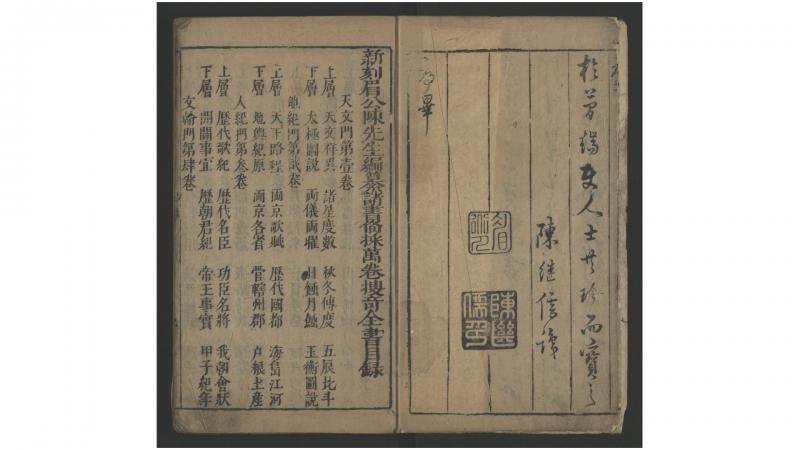 於簡端使人士共珍而寶之
陳繼儒識
序畢
陳繼儒印
新刻眉公陳先生編纂諸書備採萬卷搜奇全書目錄
天文門第壹卷
上層 天文祥異 諸星度數 秋冬傅度 五辰比斗
下層 太極圖說 両儀両曜 日蝕月蝕 玉衡圖說
地紀門第貳卷
上層 天下路程 両京歌賦 歷代國都 海島江河
下層 地輿紀原 両京各省 管轄州郡 戸粮土產
人紀門第叁卷
上層 歷代歌紀 歷代名臣 功臣名將 我朝會狀
下層 開闢事宜 歷朝君紀 帝王事實 甲子紀年
文翰門第肆卷